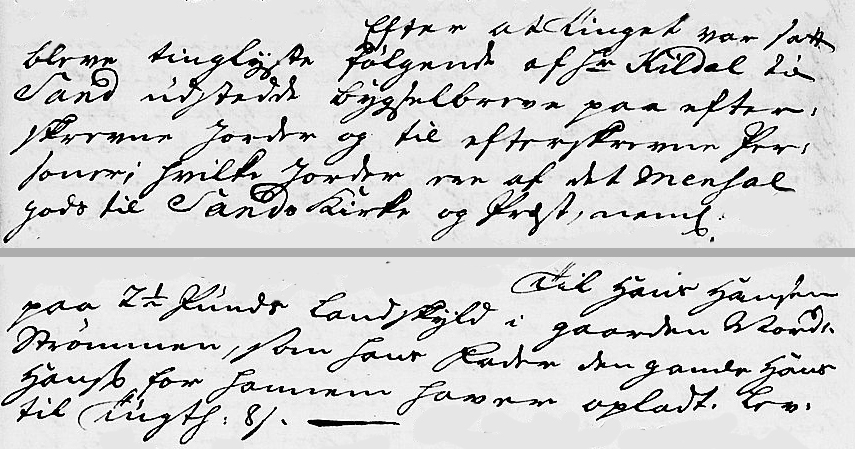 Efter at Tinget var satt
bleve tinglyste følgende af Hr Kildal til
Sand udstedde bygselbreve paa efter-
skrevne Jorder og til efterskrevne Per-
soner; hvilke Jorder ere af det Mensal
gods til Sands Kirke og Præst, neml:
Til Hans Hansen
paa 2½ Punds Landskyld i gaarden Nord-
Strömmen, som hans Fader den gamle Hans
Hans: for hannem haver opladt. Lev:
til Tugth: 8/. —